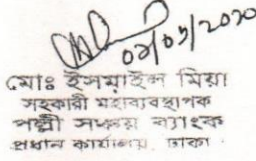 ০২/০১/২০২০
মোঃ ইসমাইল মিয়া
সহকারী মহাব্যবস্থাপক
পল্লী সঞ্চয় ব্যাংক
প্রধান কার্যালয়, ঢাকা।